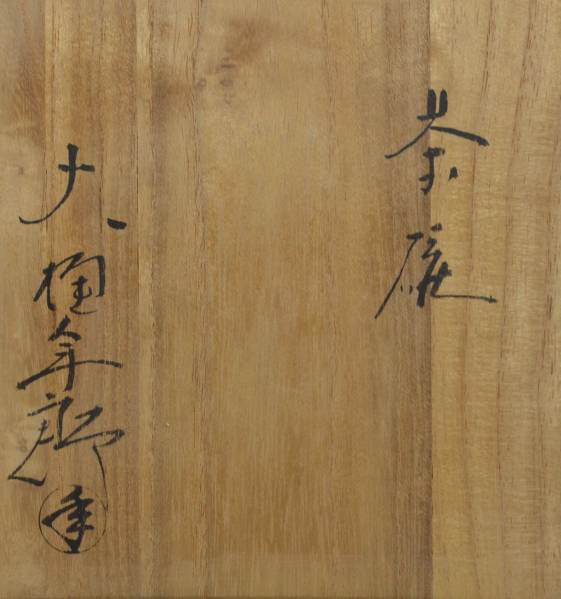 茶碗
大樋年朗 年